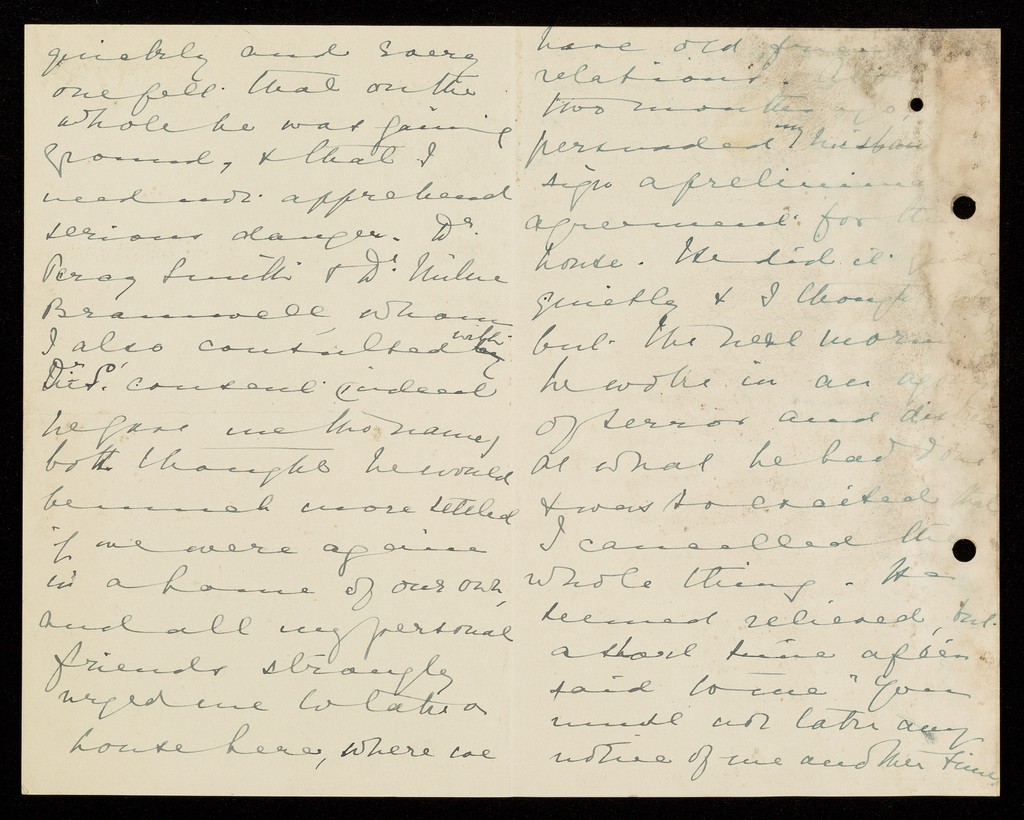 quickly and every
one felt that on the
whole he was gaining
ground, & that I
need not apprehend
serious danger. Dr.
Percy Smith & Dr. Milne
Bramwell, whom
I also consulted with
Dr. S.' consent (indeed
he gave me the name)
both thought he would
be much more settled
if we were again
in a home of our own,
and all my personal
friends strongly
urged me to take a
house here, where we
have old
relations.
two months ago,
persuaded my husban
sign a prelimina
agreement for the
house. He did it
quietly & I though
but the next morni
he woke in an ag
of terror and dis
at what he had done
& was so excited that
I cancelled the
whole thing. He
seemed relieved, but
a short time after
said to me "You
must not take any
notice of me another time